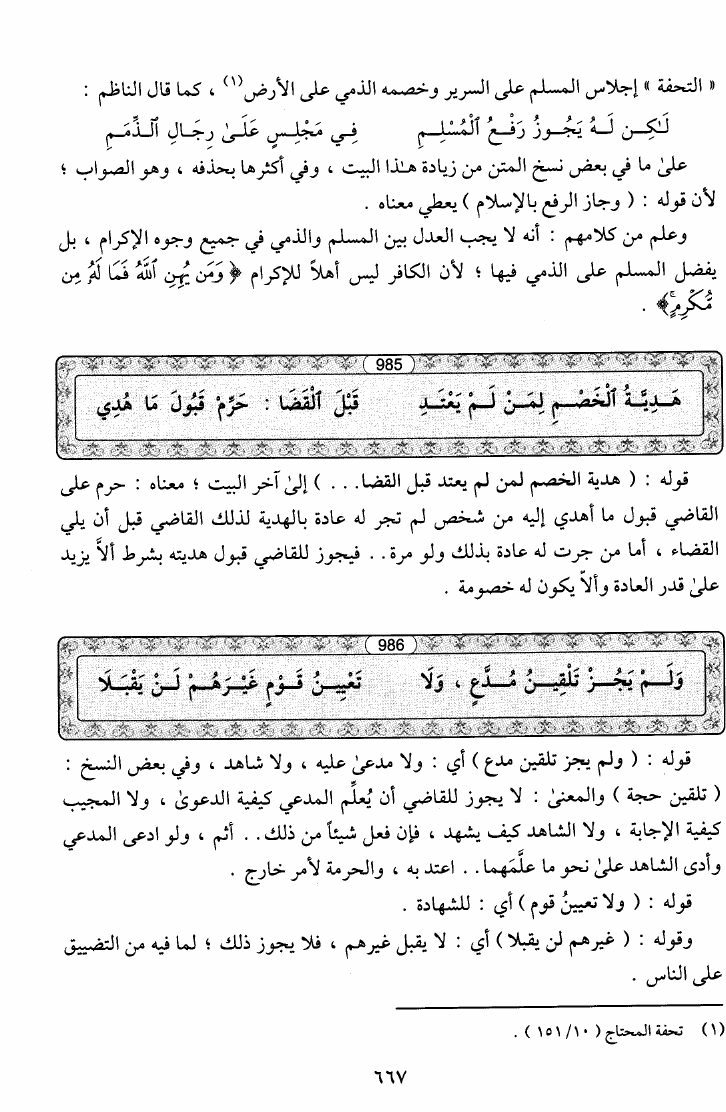 « التحفة » إجلاس المسلم على السرير وخصمه الذمي على الأرض(١) ، كما قال الناظم :
لَـٰكِـن لَـهُ يَجُـوزُ رَفْـعُ ٱلْمُسْلِـمِ فِـي مَجْلِـسٍ عَلَـىٰ رِجَـالِ ٱلـذِّمَـمِ
علىٰ ما في بعض نسخ المتن من زيادة هـٰذا البيت ، وفي أكثرها بحذفه ، وهو الصواب ؛
لأن قوله : ( وجاز الرفع بالإسلام ) يعطي معناه .
وعلم من كلامهم : أنه لا يجب العدل بين المسلم والذمي في جميع وجوه الإكرام ، بل
يفضل المسلم على الذمي فيها ؛ لأن الكافر ليس أهلاً للإكرام ﴿ وَمَن يُهِنِ ٱللَّهُ فَمَا لَهُۥ مِن
مُّكْرِمٍ ﴾ .
985
هَـدِيَّـةُ ٱلْخَصْـمِ لِمَـنْ لَـمْ يَعْتَـدِ قَبْلَ ٱلْقَضَا : حَرِّمْ قَبُولَ مَا هُدِي
قوله : ( هدية الخصم لمن لم يعتد قبل القضا . . . ) إلىٰ آخر البيت ؛ معناه : حرم على
القاضي قبول ما أهدي إليه من شخص لم تجر له عادة بالهدية لذلك القاضي قبل أن يلي
القضاء ، أما من جرت له عادة بذلك ولو مرة . . فيجوز للقاضي قبول هديته بشرط ألاَّ يزيد
علىٰ قدر العادة وألاَّ يكون له خصومة .
986
وَلَـمْ يَجُـزْ تَلْقِيـنُ مُـدَّعٍ ، وَلَا تَعْيِيـنُ قَـوْمٍ غَيْـرَهُـمْ لَـنْ يَقْبَـلَا
قوله : ( ولم يجز تلقين مدع ) أي : ولا مدعىٰ عليه ، ولا شاهد ، وفي بعض النسخ :
( تلقين حجة ) والمعنىٰ : لا يجوز للقاضي أن يُعلِّم المدعي كيفية الدعوىٰ ، ولا المجيب
كيفية الإجابة ، ولا الشاهد كيف يشهد ، فإن فعل شيئاً من ذلك . . أثم ، ولو ادعى المدعي
وأدى الشاهد علىٰ نحو ما علَّمَهما . . اعتد به ، والحرمة لأمر خارج .
قوله : ( ولا تعيينُ قوم ) أي : للشهادة .
وقوله : ( غيرهم لن يقبلا ) أي : لا يقبل غيرهم ، فلا يجوز ذلك ؛ لما فيه من التضييق
على الناس .
(١) تحفة المحتاج ( ١٠/ ١٥١ ) .
٦٦٧